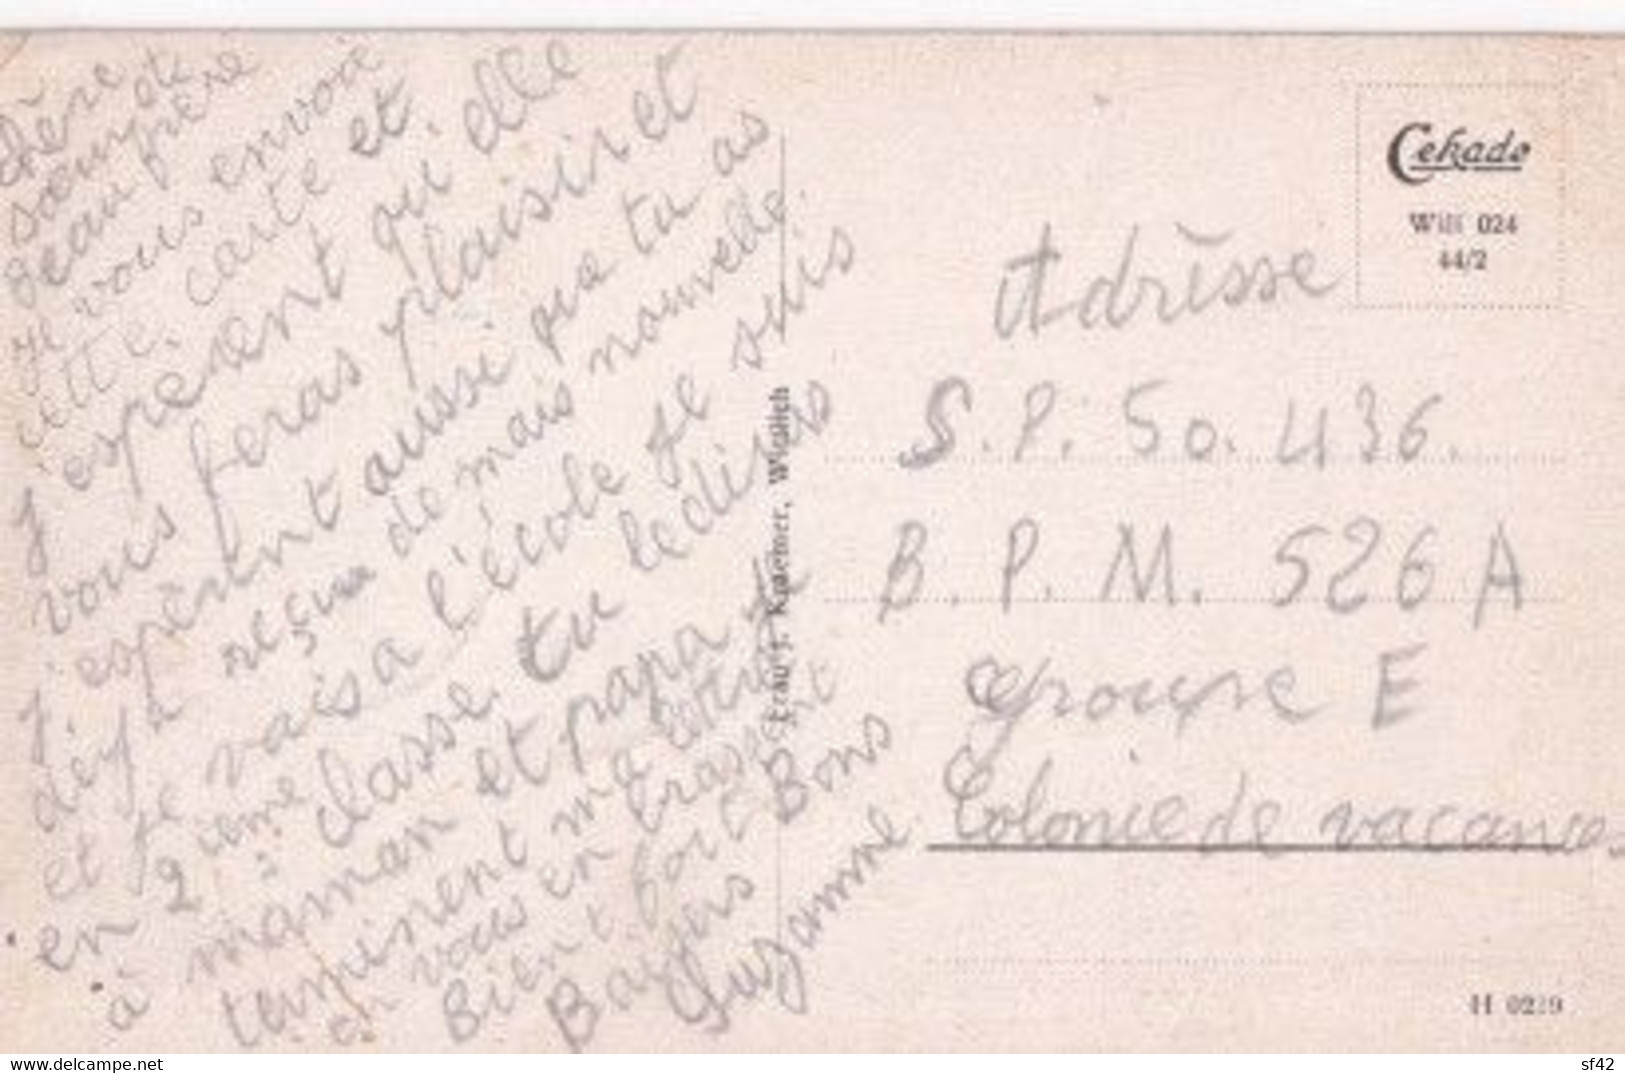 chère
sœur et
beau père
je vous envoie
cette carte et
j'espérant qu'elle
vous feras plaisir et
j'espérent aussi que tu as
déjà reçue de mais nouvelle.
et je vais a l'école je suis
en 2 ième classe. tu lediras
à maman et papa
terminent ma lettre
en vous en brassent
Bien fort Bons
Baizers
Suzanne
Frau J. Kpaemer, Wittlich
Cekade
Witt 024
44/2
Adrèsse
S. P. 50. 436.
B. P. M. 526 A
groupe E
Colonie de vacances
H 0219
www.delcampe.net
sf42